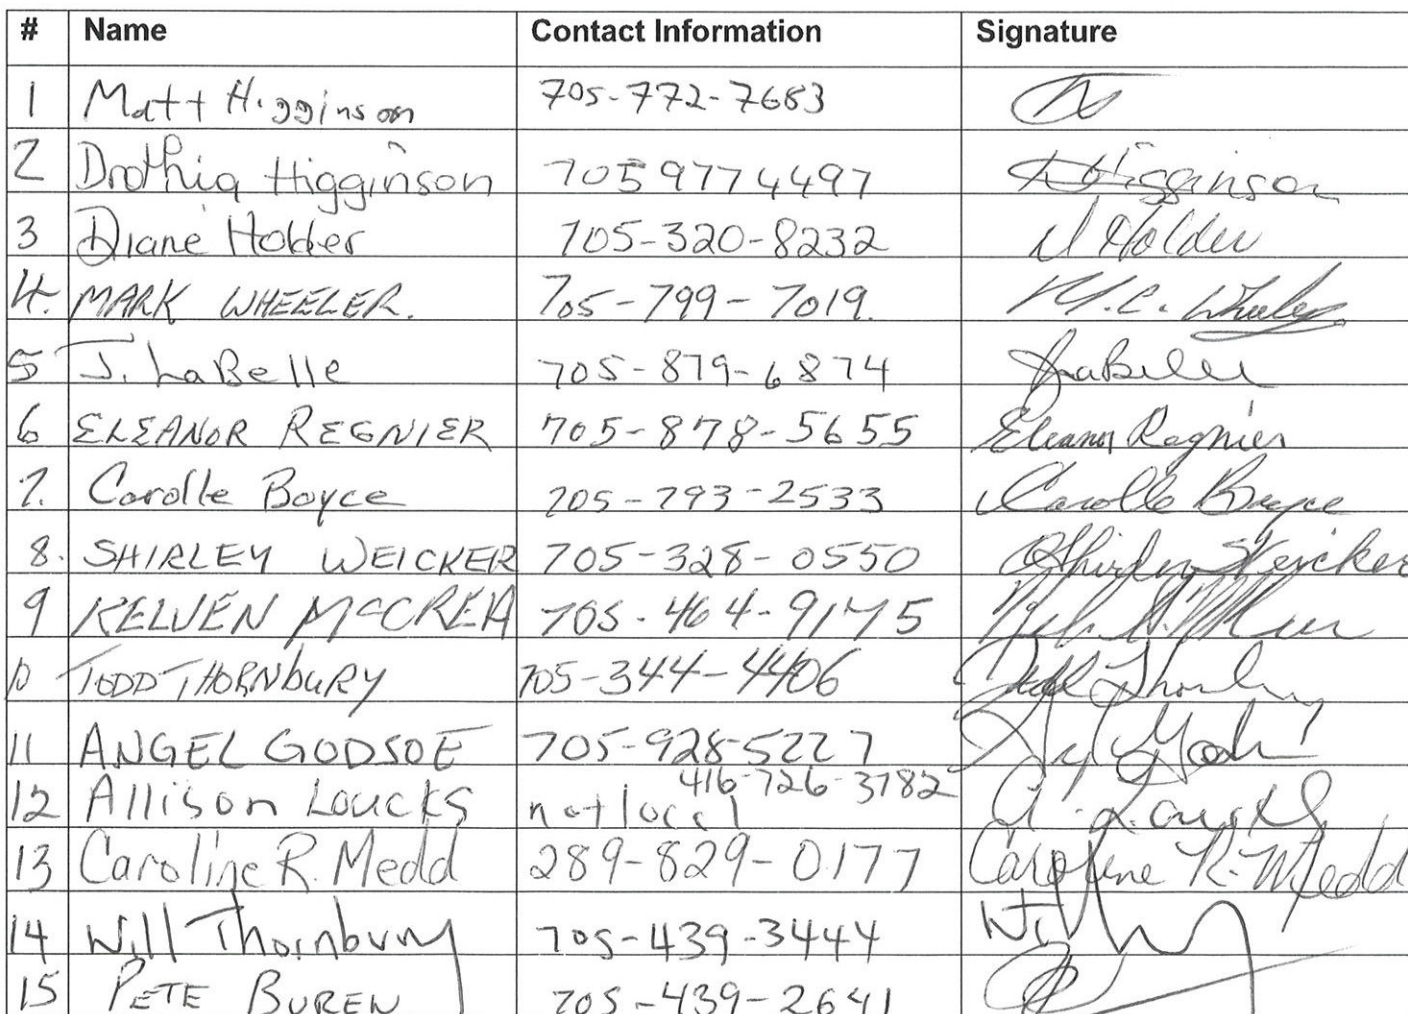 # Name Contact Information Signature
1 Matt Higginson 705-772-7683
2 Drothia Higginson 7059774497 D Higginson
3 Diane Holder 705-320-8232 D Holder
4. MARK WHEELER. 705-799-7019. M.C. Wheeler
5 J. LaBelle 705-879-6874 JLaBelle
6 ELEANOR REGNIER 705-878-5655 Eleanor Regnier
7. Carolle Boyce 705-793-2533 Carolle Boyce
8. SHIRLEY WEICKER 705-328-0550 Shirley Weicker
9 KELVEN McCREA 705-464-9175
10 TODD THORNbURY 705-344-4406 Todd Thornbury
11 ANGEL GODSOE 705-928-5227
12 Allison Loucks not local 416-726-3782 A. Loucks
13 Caroline R. Medd 289-829-0177 Caroline R. Medd
14 Will Thornbury 705-439-3444
15 PETE BUREN 705-439-2641